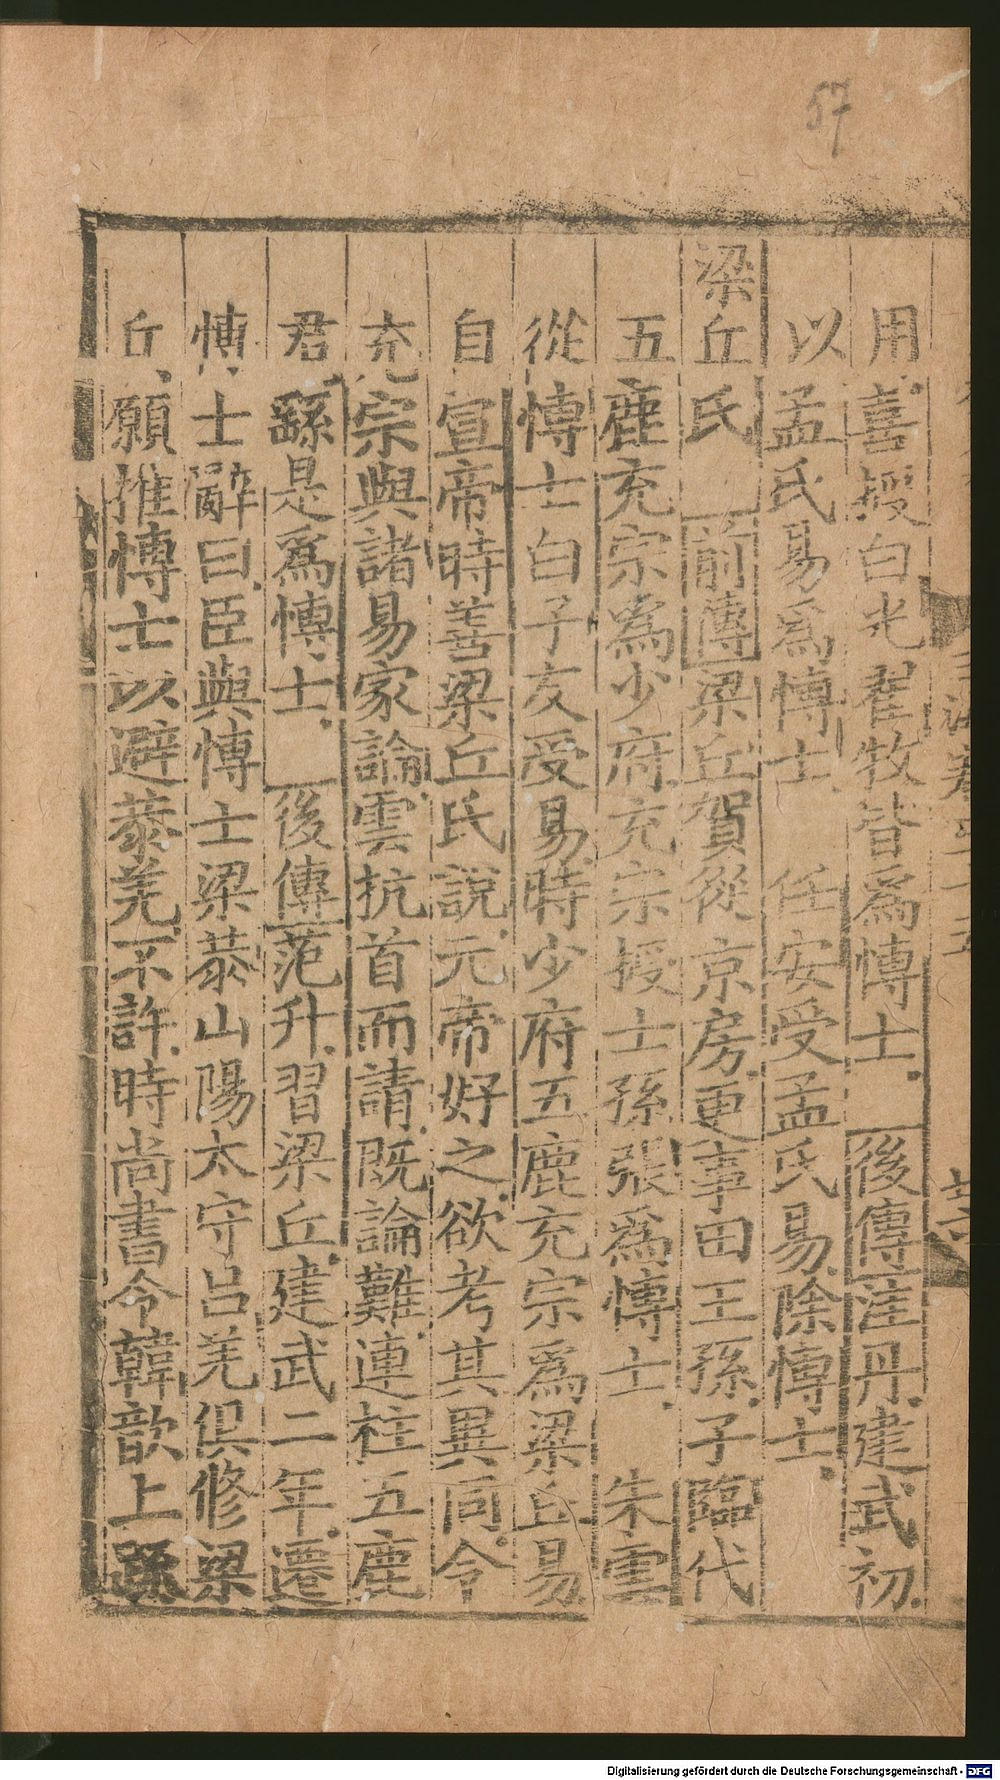 57
用喜授白光翟牧皆爲博士後傳洼丹建武初
以孟氏易爲博士任安受孟氏易除博士
梁丘氏前傳梁丘賀從京房更事田王孫子臨代
五鹿充宗爲少府充宗授士孫張爲博士朱雲
從博士白子友受易時少府五鹿充宗爲梁丘易
自宣帝時善梁丘氏說元帝好之欲考其異同令
充宗與諸易家論雲抗首而請既論難連柱五鹿
君繇是爲博士後傳范升習梁丘建武二年遷
博士辭曰臣與博士梁恭山陽太守呂羌俱修梁
丘願推博士以避恭羌不許時尚書令韓歆上疏
Digitalisierung gefördert durch die Deutsche Forschungsgemeinschaft - DFG